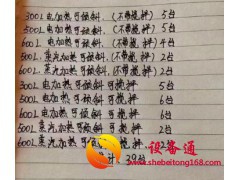 300L 电加热可倾斜.(不带搅拌) 5台
500L 电加热可倾斜.(不带搅拌) 5台
600L 电加热可倾斜.(不带搅拌) 4台
500L.蒸汽加热可倾斜(不带搅拌) 2台
600L 蒸汽加热可倾斜(不带搅拌) 2台
300L 电加热可倾斜可搅拌 6台
500L 电加热可倾斜可搅拌 6台
600L 电加热可倾斜可搅拌 6台
500L 蒸汽加热可倾斜可搅拌
600L 蒸汽加热可倾斜
计 39台
设备通
shebeitong168.com